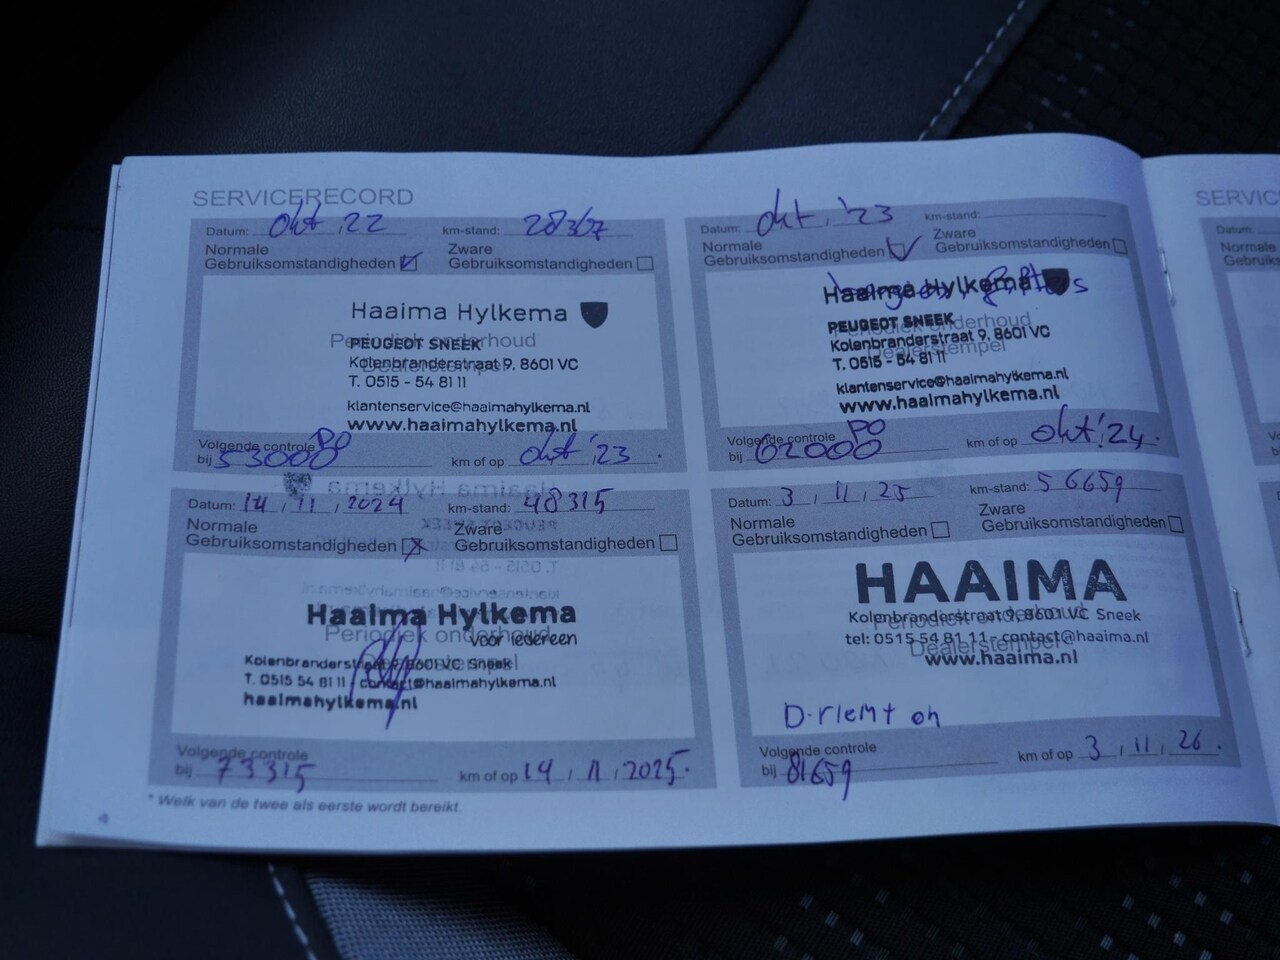 SERVICERECORD
Datum: okt '22 km-stand: 28367
Normale
Gebruiksomstandigheden
Zware
Gebruiksomstandigheden
Haaima Hylkema
Periodiek onderhoud
PEUGEOT SNEEK
Dealerstempel
Kolenbranderstraat 9, 8601 VC
T. 0515 - 54 81 11
klantenservice@haaimahylkema.nl
www.haaimahylkema.nl
Volgende controle
bij 53000 km of op okt '23.
Datum: okt. '23 km-stand:
Normale
Gebruiksomstandigheden
Zware
Gebruiksomstandigheden
Haaima Hylkema
PEUGEOT SNEEK
Periodiek onderhoud
Kolenbranderstraat 9, 8601 VC
Dealerstempel
T. 0515 - 54 81 11
klantenservice@haaimahylkema.nl
www.haaimahylkema.nl
Volgende controle
bij 62000 km of op okt '24.
Datum: 14, 11, 2024 km-stand: 48315
Normale
Gebruiksomstandigheden
Zware
Gebruiksomstandigheden
Haaima Hylkema
Periodiek onderhoud
voor iedereen
Dealerstempel
Kolenbranderstraat 9, 8601 VC Sneek
T. 0515 54 81 11 / contact@haaimahylkema.nl
haaimahylkema.nl
Volgende controle
bij 73315 km of op 14, 11, 2025.
Datum: 3, 11, 25 km-stand: 56659
Normale
Gebruiksomstandigheden
Zware
Gebruiksomstandigheden
HAAIMA
Kolenbranderstraat 9, 8601 VC Sneek
Periodiek onderhoud
tel: 0515 54 81 11 - contact@haaima.nl
Dealerstempel
www.haaima.nl
D-riemt oh
Volgende controle
bij 81659 km of op 3, 11, 26.
* Welk van de twee als eerste wordt bereikt.
4
SERVIC
Datum:
Normale
Gebruiks